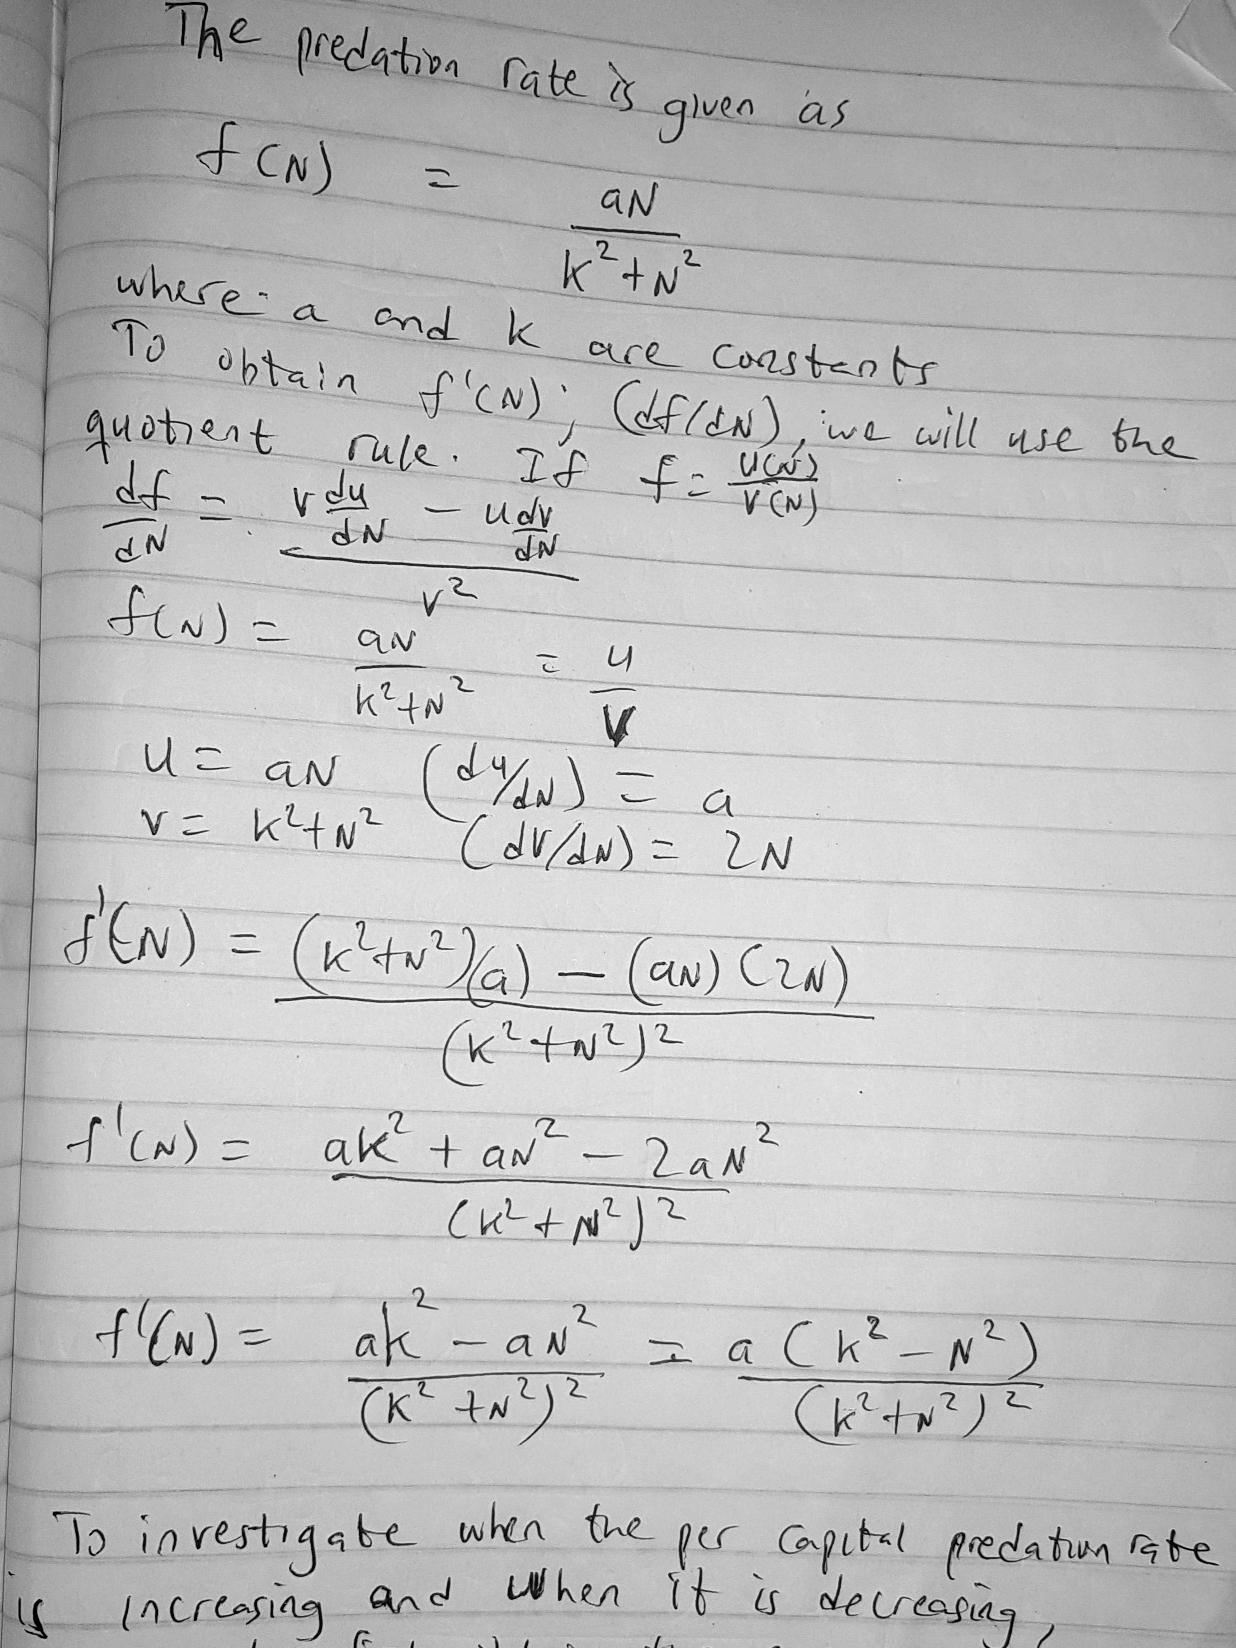 The predation rate is given as
f(N) = aN / k²+N²
where a and k are constants
To obtain f'(N); (df/dN), we will use the
quotient rule. If f = u(N)/v(N)
df/dN = v du/dN − u dv/dN / v²
f(N) = aN / k²+N² = u / v
u = aN (du/dN) = a
v = k²+N² (dv/dN) = 2N
f'(N) = (k²+N²)(a) − (aN)(2N) / (k²+N²)²
f'(N) = ak² + aN² − 2aN² / (k²+N²)²
f'(N) = ak² − aN² / (k²+N²)² = a(k²−N²) / (k²+N²)²
To investigate when the per capital predation rate
is increasing and when it is decreasing,